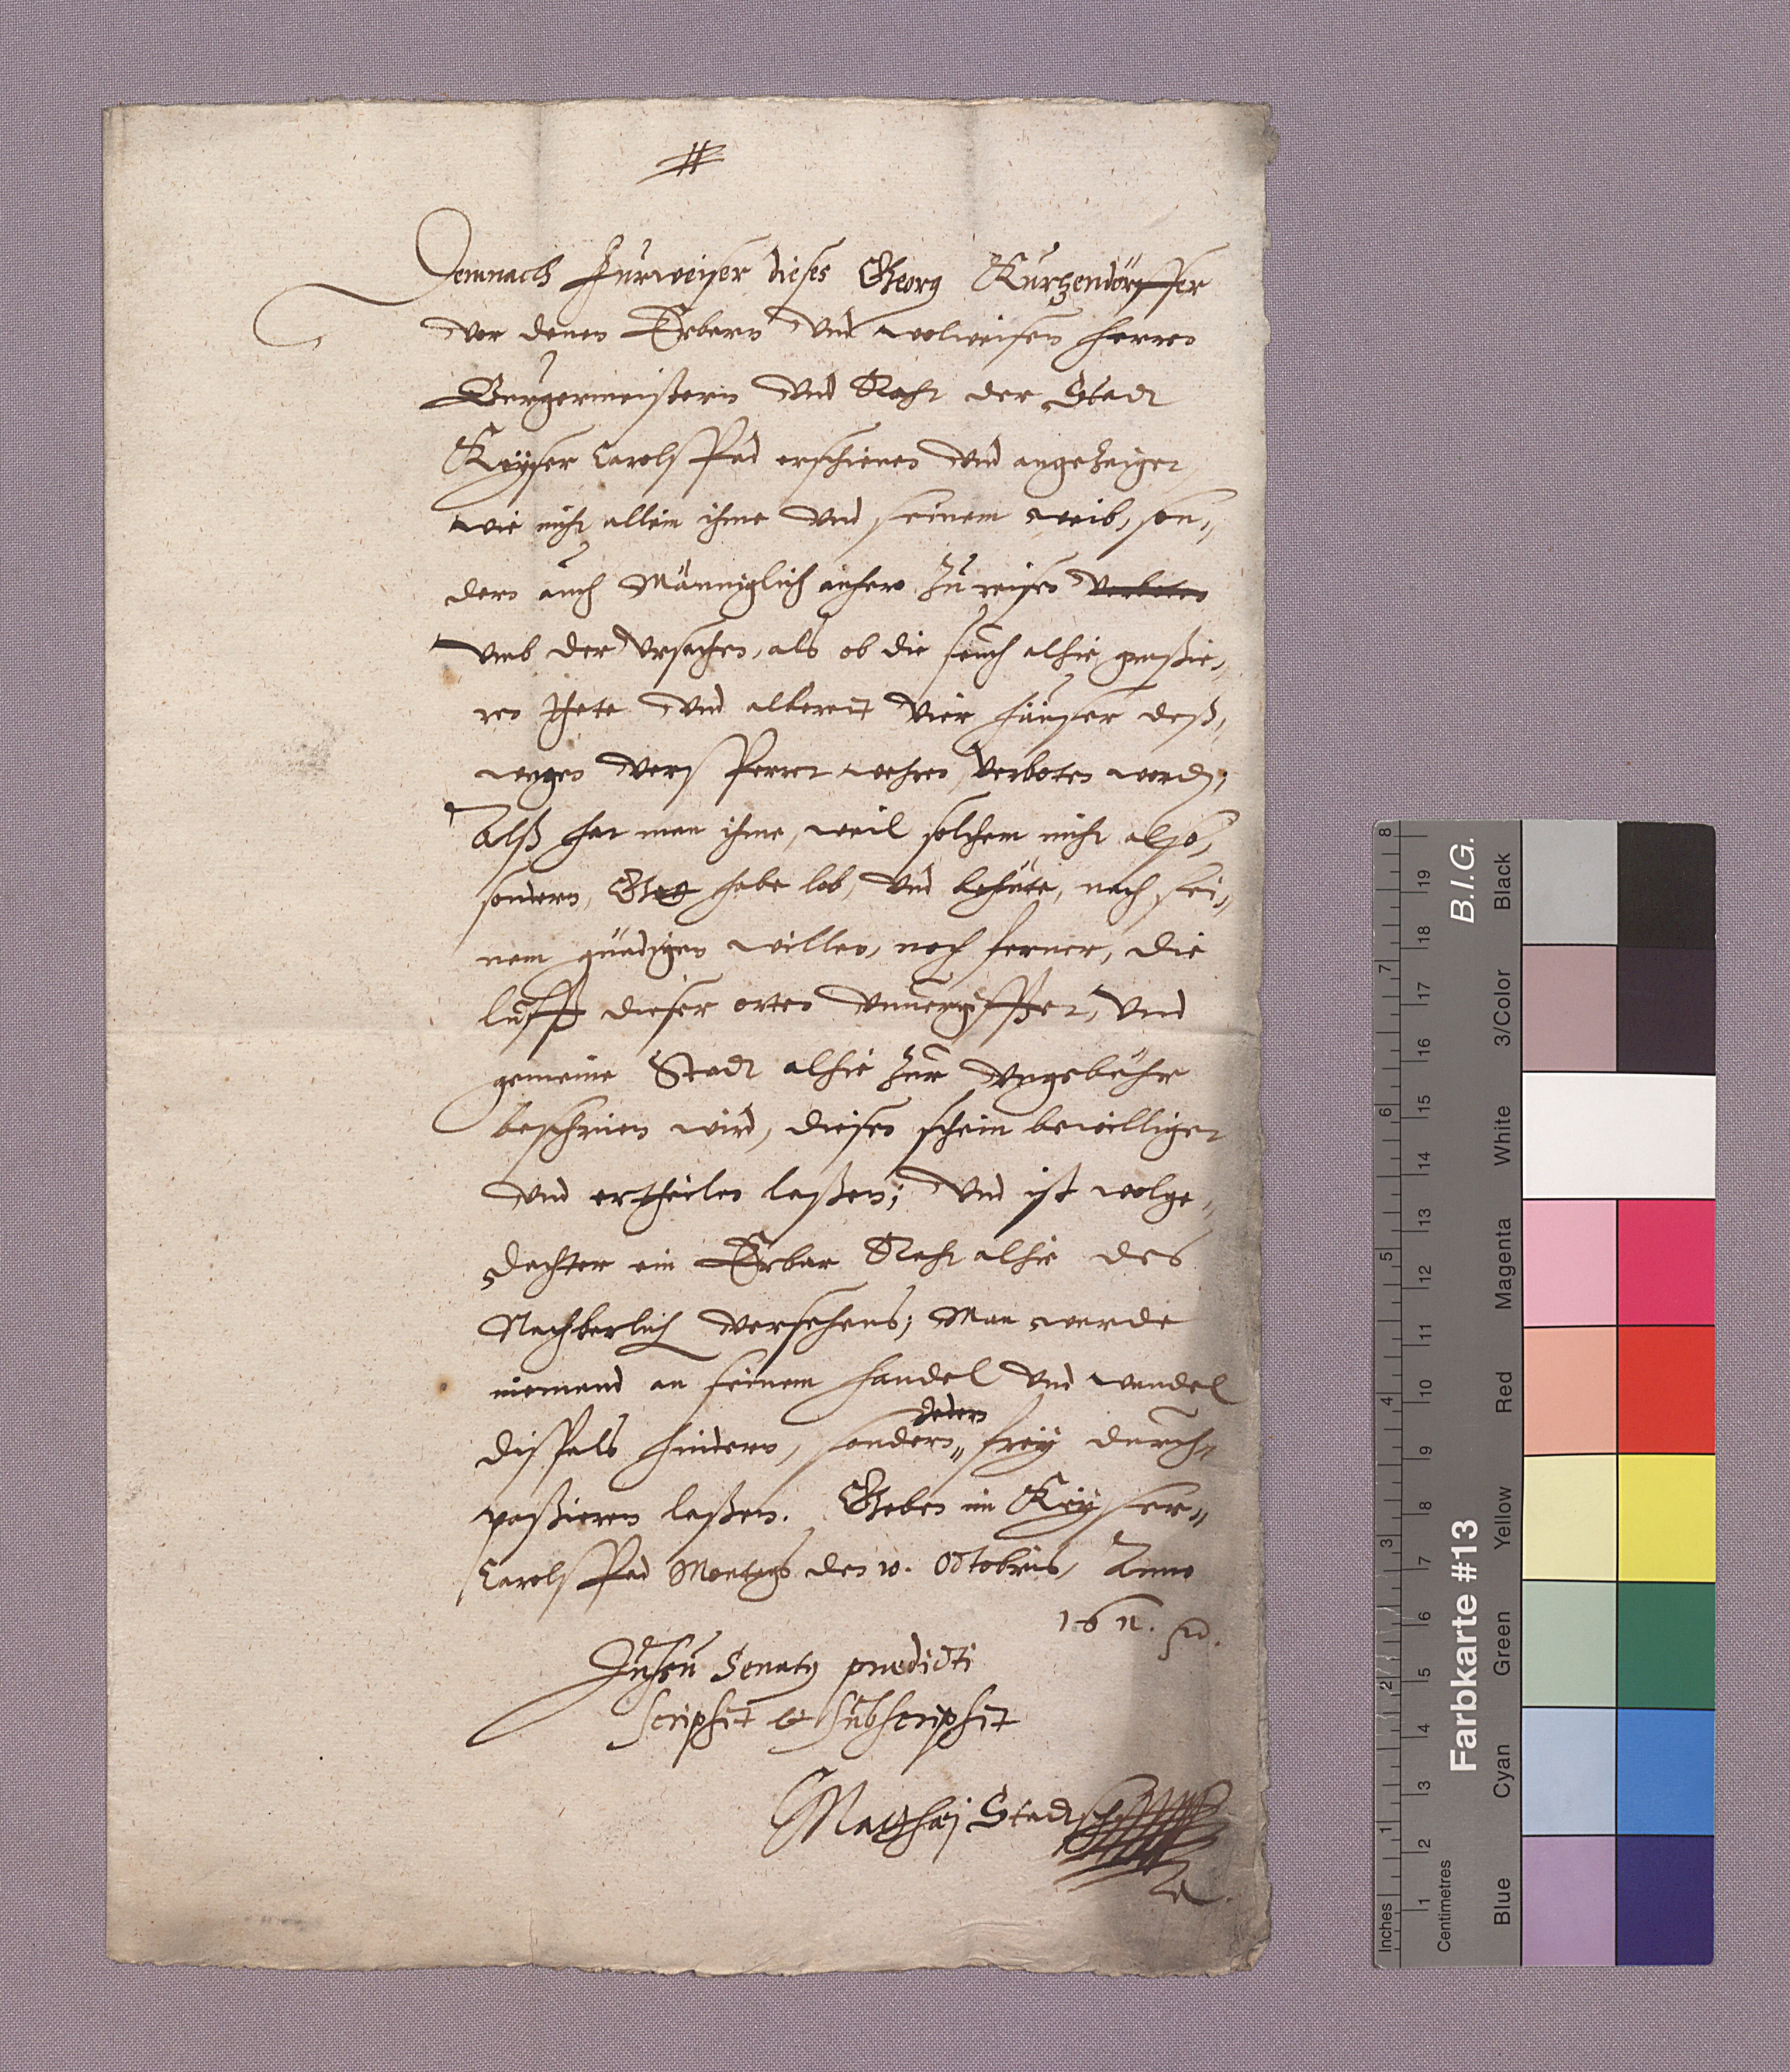 #
Demnach Fürweiser dieses Georg Kürtzendörffer
vor denen Erbarn vnd wolweisen herren
Bürgermeistern vnd Raht der Stadt
Keÿser Carolspad erschienen vnd angezeiget
wie nicht allein ihme vnd seinem weib, son„
dern auch Männiglich anhero zu reisen verboten
vmb der vrsachen, als ob die seuch alhie graßie„
ren thete vnd albereit vier häuser deß„
wegen versperret wehren, verboten word,
Alß hat man ihme, weil solchem nicht also,
sondern, Gott habe lob, vnd behüte, nach sei„
nem gnädigen willen, noch ferner, die
lufft dieser orten vnuergifftet, vnd
gemeine Stadt alhie zur vngebühr
beschrien wird, diesen schein bewilliget
vnd ertheilen laßen; vnd ist wolge„
dachter ein Erbar Raht alhie des
Nachberlich versehens; Man werde
niemand an seinem handel vnd wandel
dißfals hindern, sondern„ frey durch„
paßieren laßen. Geben im Keÿser„
Carolspad Montags den 10. Octobris, Anno
1611.
Jussu Senatus praedicti
scripsit et subscripsit
Matthaej Stadtsch